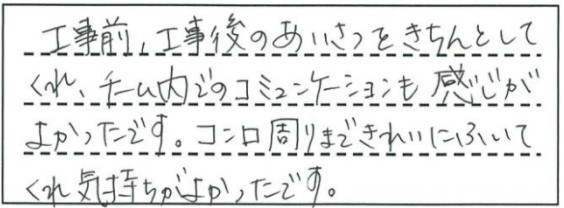 工事前、工事後のあいさつをきちんとして
くれ、チーム内でのコミュニケーションも感じが
よかったです。コンロ周りまできれいにふいて
くれ気持ちがよかったです。